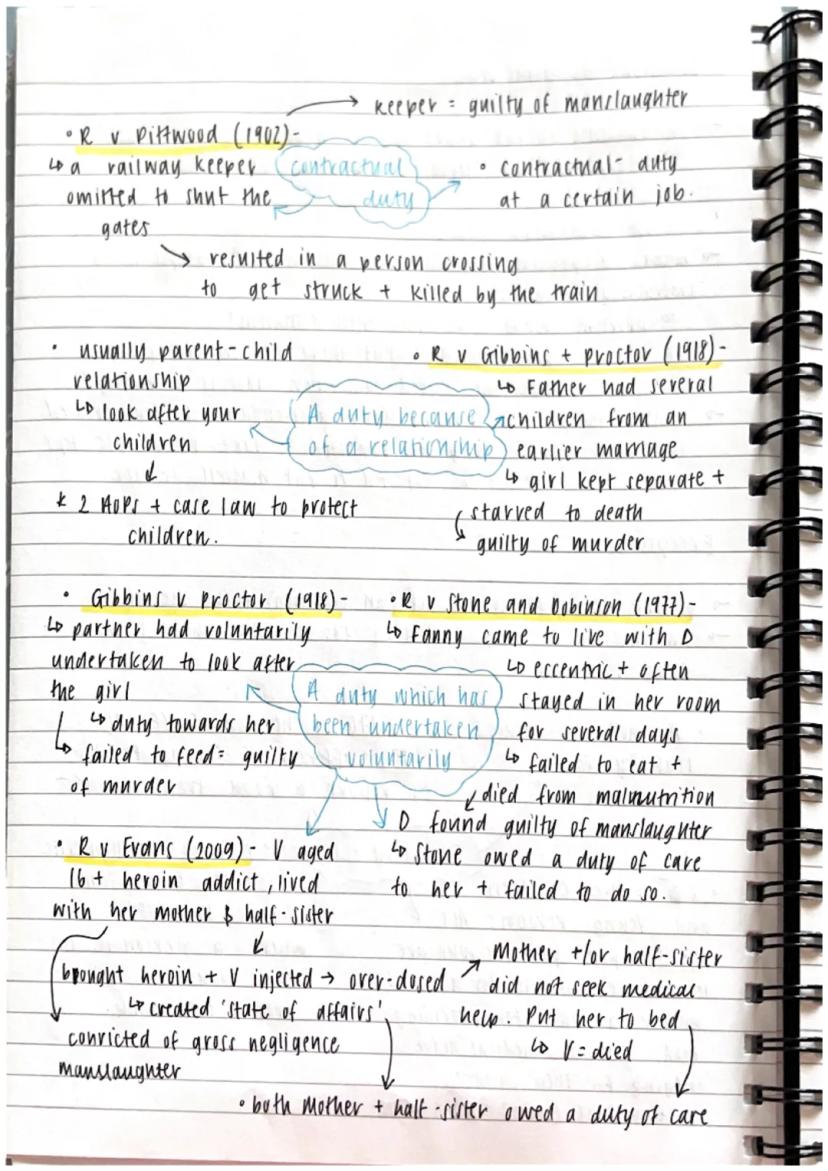 → keeper = guilty of manslaughter
• R v Pittwood (1902) -
↳ a railway keeper
omitted to shut the
gates
contractual
duty
• contractual - duty
at a certain job.
→ resulted in a person crossing
to get struck + killed by the train
• usually parent-child
relationship
↳ look after your
children
↓
* 2 AOPs + case law to protect
children.
A duty because
of a relationship
• R v Gibbins + proctor (1918) -
↳ Father had several
children from an
earlier marriage
↳ girl kept separate +
starved to death
guilty of murder
• Gibbins v Proctor (1918) -
↳ partner had voluntarily
undertaken to look after
the girl
↳ duty towards her
↳ failed to feed = guilty
of murder
A duty which has
been undertaken
voluntarily
• R v Stone and Dobinson (1977) -
↳ Fanny came to live with D
↳ eccentric + often
stayed in her room
for several days
↳ failed to eat +
died from malnutrition
D found guilty of manslaughter
↳ Stone owed a duty of care
to her + failed to do so.
• R v Evans (2009) - V aged
16 + heroin addict, lived
with her mother & half-sister
brought heroin + V injected → over-dosed
↳ created 'state of affairs'
convicted of gross negligence
manslaughter
Mother +/or half-sister
did not seek medical
help. Put her to bed
↳ V = died
• both mother + half-sister owed a duty of care